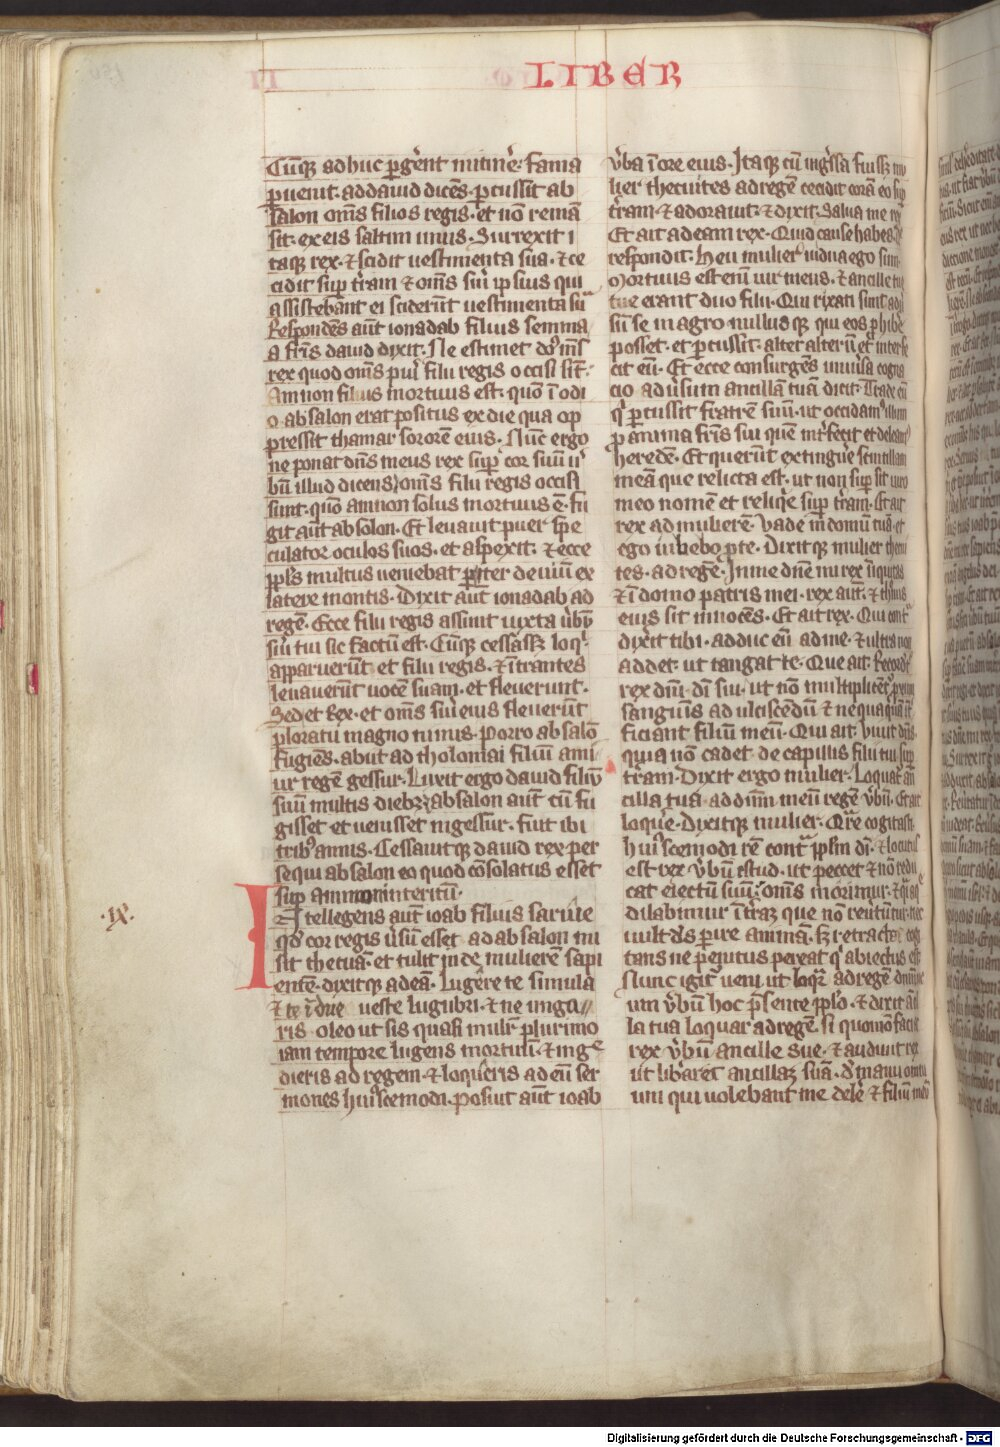 LIBER
Cūq; adhuc ꝑgerent in itinere: fama
ꝑuenit· ad dauid dicēs· ꝑcussit ab
salon om̄s filios regis· et nō reman
sit· ex eis saltim unus· Surrexit i
taq; rex· ⁊ scidit uestimenta sua· ⁊ ce
cidit suꝑ t̄ram ⁊ om̄s sui ipsius qui
assistebant ei sciderūt uestimenta sua
Respondēs aūt ionadab filius semma
a fr̄is dauid dixit· Ne estimet dn̄s m̄s
rex quod om̄s pu̅i filii regis occisi sīt·
Amnon filius mortuus est· quō ī odi
o absalon erat positus ex die qua op
pressit thamar sororē eius· Nūc ergo
ne ponat dn̄s meus rex suꝑ cor suū u̅
bū illud dicens· om̄s filii regis occisi
sunt· quō amnon solus mortuus ē· fu
git aūt absalon· Et leuauit puer spe
culator oculos suos· et aspexit· ⁊ ecce
ppl̄s multus ueniebat ꝑ iter deuiū ex
latere montis· Dixit aūt ionadab ad
regē· Ecce filii regis assunt iuxta ūbū
sui tui sic factū est· Cūq; cessass; loqi·
apparuerūt et filii regis· ⁊ ītrantes
leuauerūt uocē suam· et fleuerunt·
Sed et Rex· et om̄s sui eius fleuerūt
ploratu magno nimis· Porro absalō
fugiens· abiit ad tholomai filiū ami
ur regē gessur· Luxit ergo dauid filiū
suū multis dieb;· absalon aūt cū fu
gisset et uenisset in gessur· fuit ibi
trib; annis· Cessauitq; dauid rex per
sequi absalon eo quod cōsolatus esset
suꝑ ammon interitū·
·IX·
Intellegens aūt ioab filius saruie
qd̄ cor regis ūsum esset ad absalon mi
sit thecuā· et tulit inde mulierē sapi
entē· dixitq; ad eā· Lugere te simula
⁊ te īdue ueste lugubri· ⁊ ne ungua
ris oleo ut sis quasi mulr̄ plurimo
iam tempore lugens mortuū· ⁊ ing͛
dieris ad regem· ⁊ loqueris ad eū ser
mones huiuscemodi· Posuit aūt ioab
ūba ī ore eius· Itaq; cū ing̅ssa fuiss; mu
lier thecuites ad regē cecidit corā eo suꝑ
t̄ram· ⁊ adorauit· ⁊ dixit· Salua me rex
Et ait ad eam rex· Quid cause habes· Que
respondit· Heu mulier uidua ego sum·
Mortuus est enī uir meus· ⁊ ancille tu
tue erant duo filii· Qui rixati sunt adū
sū se in agro· nullusq; qui eos ꝓhibe
posset· et ꝑcussit· alter alterū et interfe
cit eū· Et ecce consurgēs uniūsa cogna
cio adūsum ancillā tuā dicit· Trade eū
q̄ ꝑcussit fratrē suū· ut occidam illum
ꝓ anima fr̄is sui quē int̄fecit et deleam
heredē· Et querūt extinguere scintillam
meā que relicta est· ut non suꝑ sit uiro
meo nomē et reliqe suꝑ t̄ram· Et ait
rex ad mulierē· Vade in domū tuā· et
ego iubebo ꝓ te· Dixitq; mulier thecui
tes· ad regē· In me dn̄e mi rex iniquitas
⁊ ī domo patris mei· rex aūt· ⁊ thronus
eius sit innocēs· Et ait rex· Qui cont̄
dixerit tibi· adduc eū ad me· ⁊ ultra non
addet· ut tangat te· Que ait· Recordet̄
rex dn̄i dī sui· ut nō multiplicent͛ proximi
sanguīs ad ulciscēdū ⁊ nequaquā īt̄
ficiant filiū meū· Qui ait· Viuit dn̄s·
quia nō cadet de capillis filii tui suꝑ
t̄ram· Dixit ergo mulier· Loquat̄ an
cilla tua ad dn̄m meū regē ūbū· Et ait
loquere· Dixitq; mulier· Qr̄e cogitasti
huiuscemodi rē cont̄ ipsm dī· ⁊ locutus
est rex ūbū istud· ut peccet ⁊ nō redu
cat eiectū suū· om̄s morimur· ⁊ quasi aq͛
dilabimur ī t̄ra; que nō reūtūtur· nec
uult ds̄ ꝑire animā· s; retractat cogi
tans ne penitus pereat qi abiectus est
Nunc igit̄ ueni ut loqr̄ ad regē dn̄m me
um ūbū hoc p̄sente pplo· ⁊ dixit ancil
la tua loquar ad regē si quomō faciat
rex ūbū ancille sue· ⁊ audiuit rex
ut libaret ancilla; suā· de manu omni
um qui uolebant me dele̅ ⁊ filiū meū
Digitalisierung gefördert durch die Deutsche Forschungsgemeinschaft - DFG